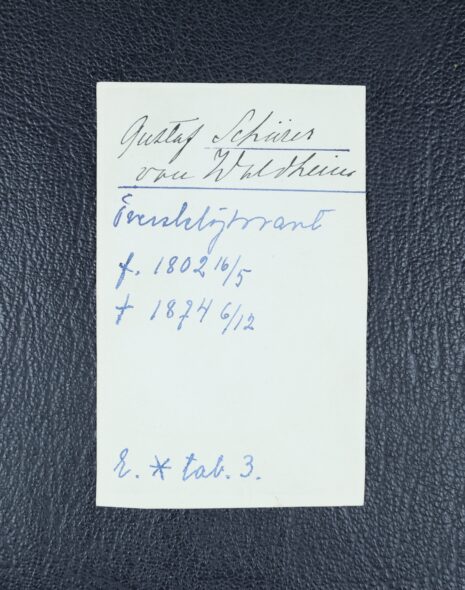 Gustaf Schürer
von Waldheim
Överstelöjtnant
f. 1802 16/5
† 1874 6/12
E. * tab. 3.